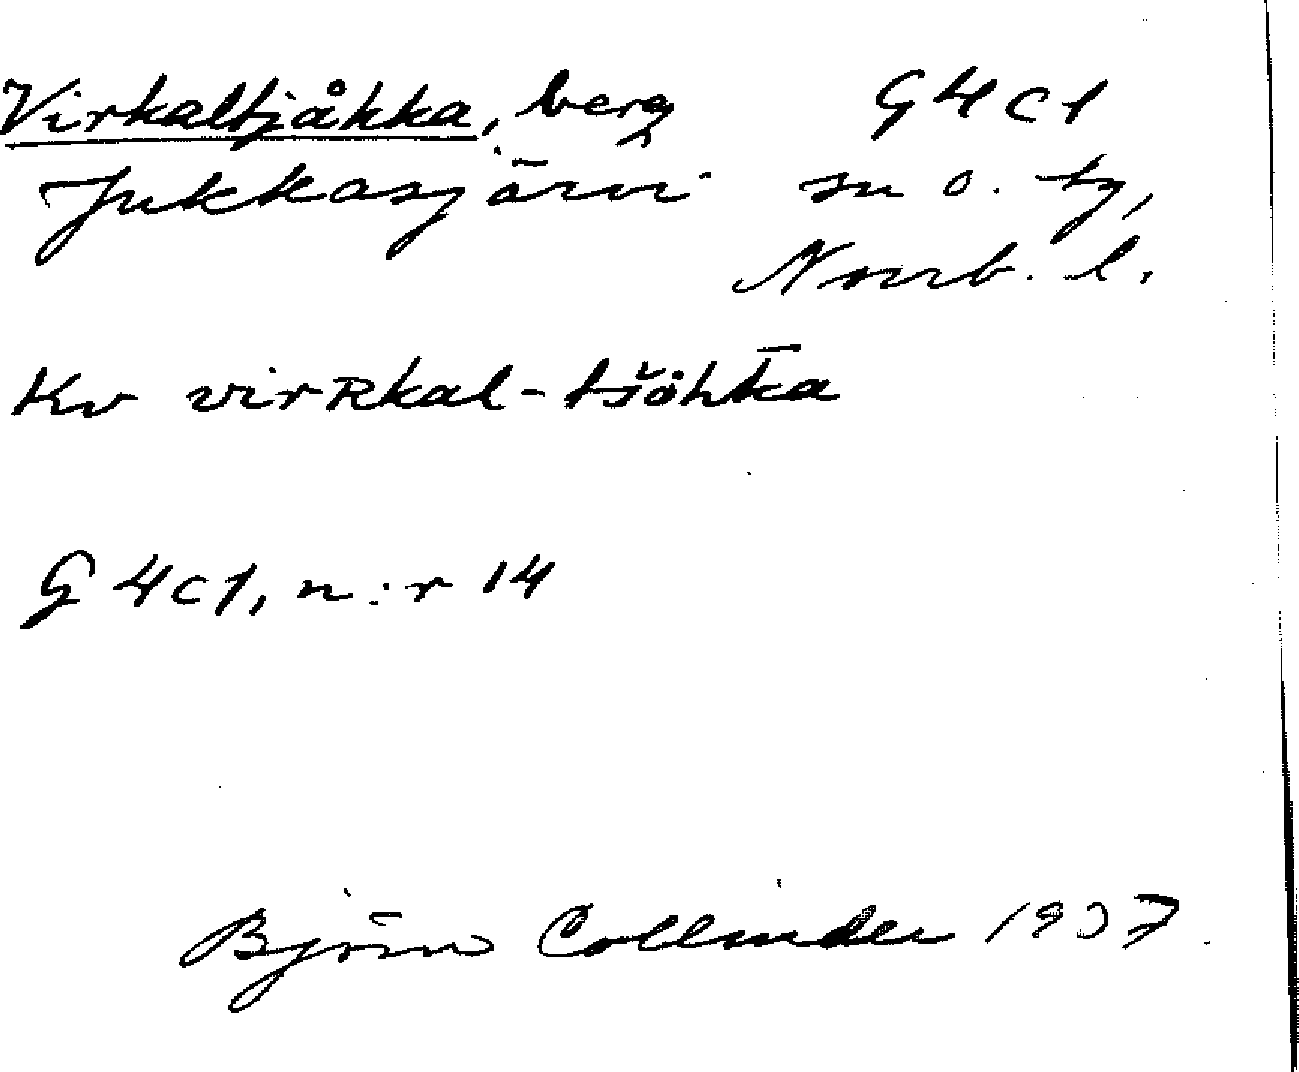 Virkaltjåkka, berg G4c1
Jukkasjärvi sn o. tg,
Norrb. l.
Kv virʀkal-tšåhk̄a
G4c1, n:r 14
Björn Collinder 1937